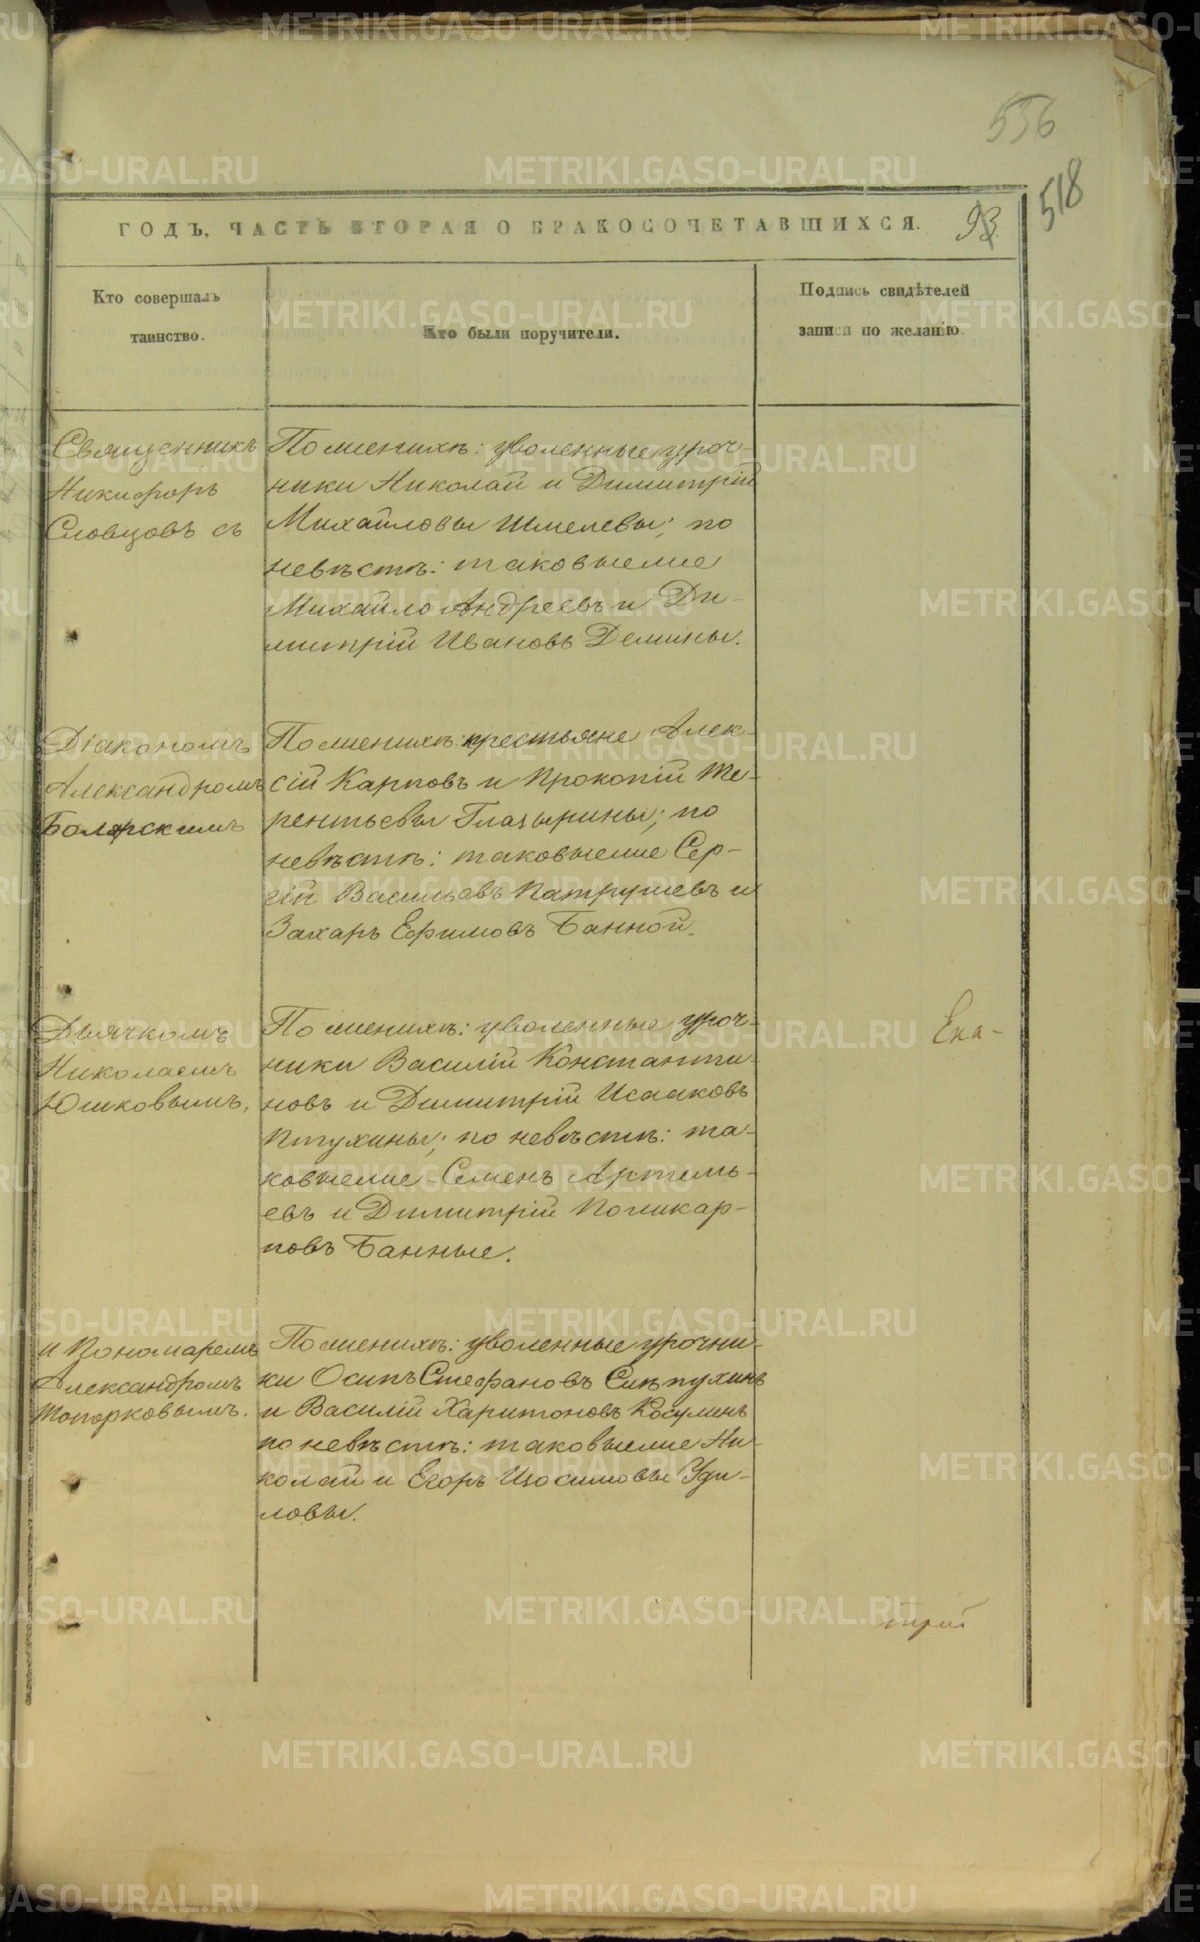 556
518
ГОДЪ, ЧАСТЬ ВТОРАЯ О БРАКОСОЧЕТАВШИХСЯ.
93.
Кто совершалъ
таинство.
Кто были поручители.
Подпись свидѣтелей
записи по желанію.
Священникъ
Никифоръ
Словцовъ съ
По женихѣ: уволенные уроч-
ники Николай и Димитрій
Михайловы Шмелевы; по
невѣстѣ: таковыеже
Михайло Андреевъ и Ди-
митрій Ивановъ Демины.
Діакономъ
Александромъ
Боярскимъ
По женихѣ: крестьяне Алек-
сій Карповъ и Прокопій Те-
рентьевы Глазырины; по
невѣстѣ: таковыеже Сер-
гій Васильевъ Патрушевъ и
Захаръ Ефимовъ Банной.
Дьячкомъ
Николаемъ
Юшковымъ,
По женихѣ: уволенные уроч-
ники Василій Константи-
новъ и Димитрій Исааковъ
Птухины; по невѣстѣ: та-
ковыеже Семенъ Артемь-
евъ и Димитрій Поликар-
повъ Банные.
Ека-
и Пономаремъ
Александромъ
Топорковымъ.
По женихѣ: уволенные урочни-
ки Осипъ Стефановъ Слѣпухинъ
и Василій Харитоновъ Косулинъ
по невѣстѣ: таковыеже Ни-
колай и Егоръ Изосимовы Уди-
ловы.
METRIKI.GASO-URAL.RU